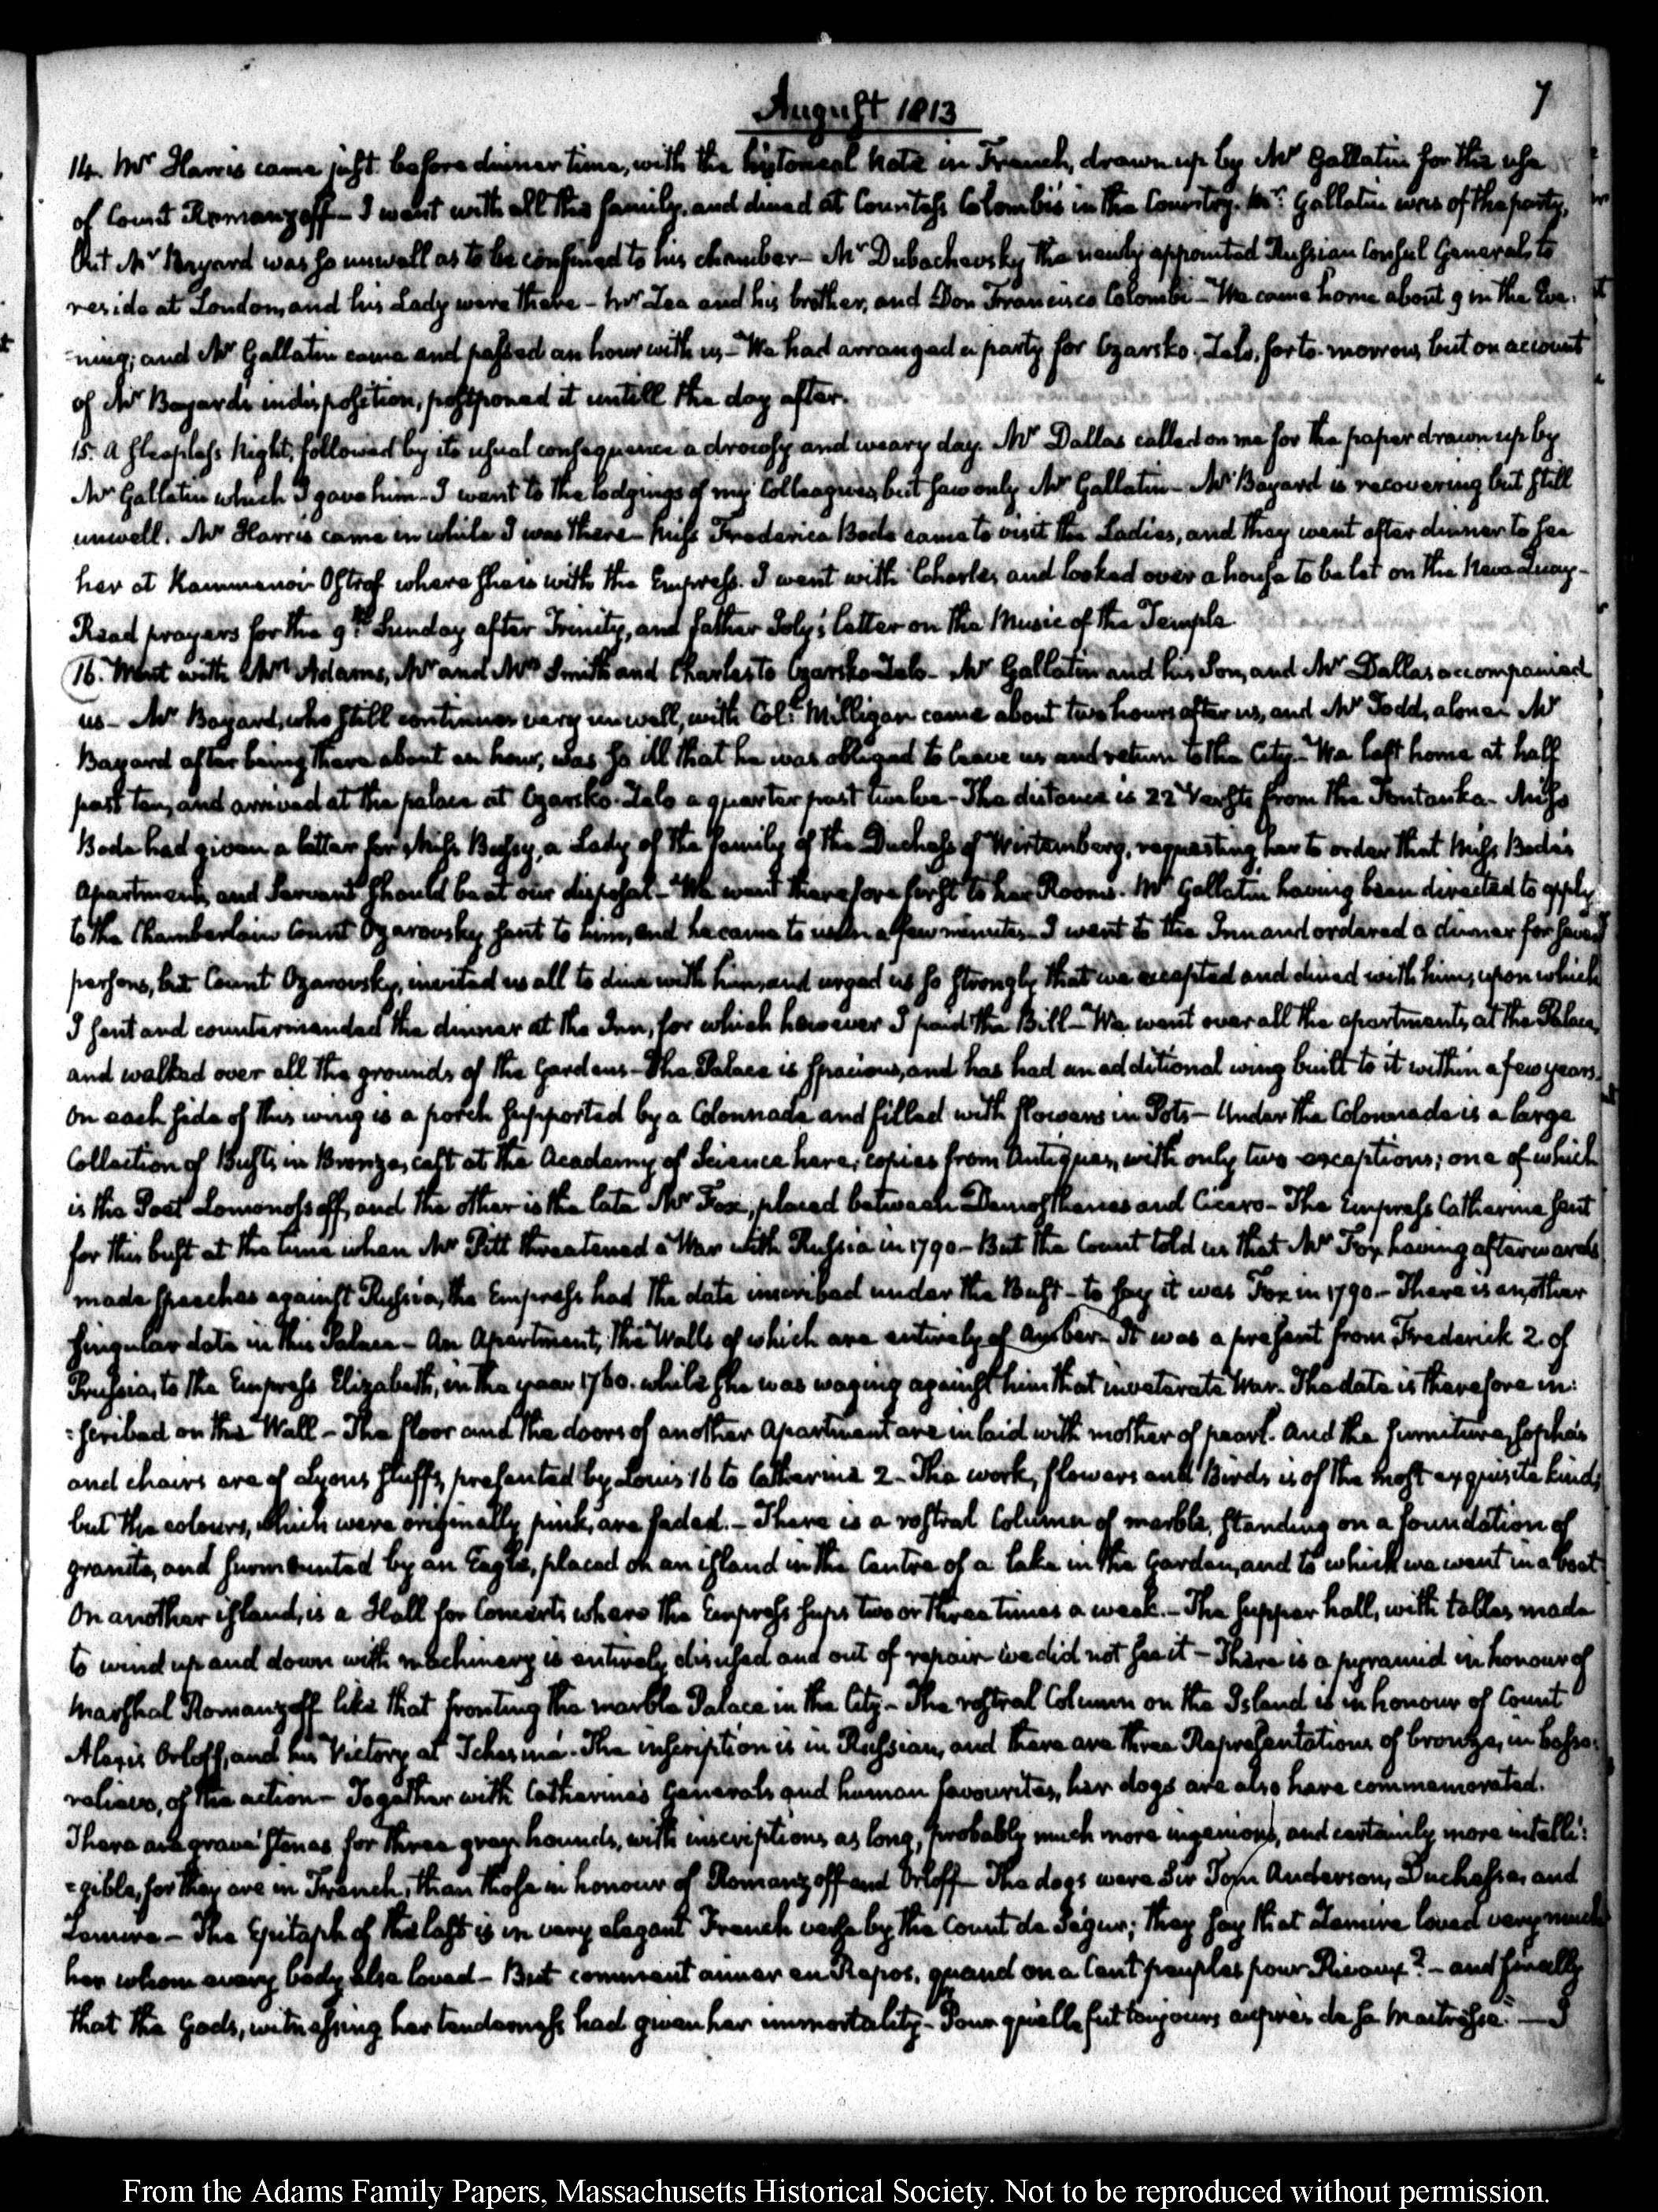 August 1813
7
14. Mr Harris came just before dinner time, with the historical Note in French, drawn up by Mr Gallatin for the use
of Count Romanzoff — I went with all the family, and dined at Countess Colombi's in the Country. Mr Gallatin was of the party,
but Mr Bayard was so unwell as to be confined to his chamber — Mr Dubachevsky the newly appointed Russian Consul General, to
reside at London, and his Lady were there — Mr Zea and his brother, and Don Francisco Colombi — We came home about 9 in the Eve:
=ning; and Mr Gallatin came and passed an hour with us — We had arranged a party for Czarsko-Zelo, for to-morrow, but on account
of Mr Bayard's indisposition, postponed it untill the day after.
15. A sleepless Night, followed by its usual consequence a drowsy and weary day. Mr Dallas called on me for the paper drawn up by
Mr Gallatin which I gave him — I went to the lodgings of my Colleagues, but saw only Mr Gallatin — Mr Bayard is recovering but still
unwell. Mr Harris came in while I was there — Miss Frederica Bode came to visit the Ladies, and they went after dinner to see
her at Kammenoi-Ostrof where she is with the Empress. I went with Charles, and looked over a house to be let on the Neva Quay —
Read prayers for the 9th Sunday after Trinity, and father Joly's letter on the Music of the Temple
16. Went with Mrs Adams, Mr and Mrs Smith and Charles to Czarsko-Zelo — Mr Gallatin and his Son, and Mr Dallas accompanied
us — Mr Bayard, who still continues very unwell, with Coll Milligan came about two hours after us, and Mr Todd, alone. Mr
Bayard after being there about an hour, was so ill that he was obliged to leave us and return to the City — We left home at half
past ten, and arrived at the palace at Czarsko-Zelo a quarter past twelve — The distance is 22 Versts from the Fontanka — Miss
Bode had given a letter for Miss Bussy, a Lady of the family of the Duchess of Wirtemberg, requesting her to order that Miss Bode's
Apartments, and Servant should be at our disposal — We went therefore first to her Rooms. Mr Gallatin having been directed to apply
to the Chamberlain Count Ozarowsky sent to him, and he came to us in a few minutes — I went to the Inn and ordered a dinner for seven
persons, but Count Ozarowsky, invited us all to dine with him, and urged us so strongly that we accepted and dined with him; upon which
I sent and countermanded the dinner at the Inn, for which however I paid the Bill — We went over all the apartments, at the Palace,
and walked over all the grounds of the Gardens — The Palace is spacious, and has had an additional wing built to it within a few years.
On each side of this wing is a porch supported by a Colonnade and filled with flowers in Pots — Under the Colonnade is a large
Collection of Busts, in Bronze, cast at the Academy of Science here, copies from Antiques, with only two exceptions; one of which
is the Poet Lomonossoff, and the other is the late Mr Fox, placed between Demosthenes and Cicero — The Empress Catherine sent
for this bust at the time when Mr Pitt threatened a War with Russia in 1790 — But the Count told us that Mr Fox, having afterwards
made speeches against Russia, the Empress had the date inscribed under the Bust — to say it was Fox in 1790. — There is another
singular date in this Palace — An Apartment, the Walls of which are entirely of amber — It was a present from Frederick 2. of
Prussia, to the Empress Elizabeth, in the year 1760. while she was waging against him that inveterate War. The date is therefore in:
=scribed on the Wall — The floor and the doors of another Apartment are inlaid with mother of pearl. And the furniture, sopha's
and chairs are of Lyons stuffs, presented by Louis 16 to Catherine 2 — The work, flowers and Birds is of the most exquisite kind,
but the colours, which were originally pink, are faded. — There is a rostral Column of marble, standing on a foundation of
granite, and surmounted by an Eagle, placed on an island in the Centre of a lake in the Garden, and to which we went in a boat.
On another island, is a Hall for Concerts where the Empress sups two or three times a week. — The supper hall, with tables made
to wind up and down with machinery is entirely disused and out of repair we did not see it — There is a pyramid in honour of
Marshal Romanzoff like that fronting the marble Palace in the City — The rostral Column on the Island is in honour of Count
Alexis Orloff, and his Victory at Tchesmé. The inscription is in Russian, and there are three Representations of bronze, in basso:
relievo, of the action — Together with Catherine's Generals and human favourites, her dogs are also here commemorated.
There are grave stones for three grey hounds, with inscriptions as long, probably much more ingenious, and certainly more intelli:
=gible, for they are in French, than those in honour of Romanzoff and Orloff — The dogs were Sir Tom Anderson, Duchesse, and
Zemire — The Epitaph of the last is in very elegant French verse by the Count de Ségur; they say that Zemire loved very much
her whom every body else loved — But comment aimer en Repos, quand on a Cent peuples pour Rivaux? — and finally
that the Gods, witnessing her tenderness had given her immortality — Pour qu'elle fut toujours auprès de sa Maitresse. — I
From the Adams Family Papers, Massachusetts Historical Society. Not to be reproduced without permission.